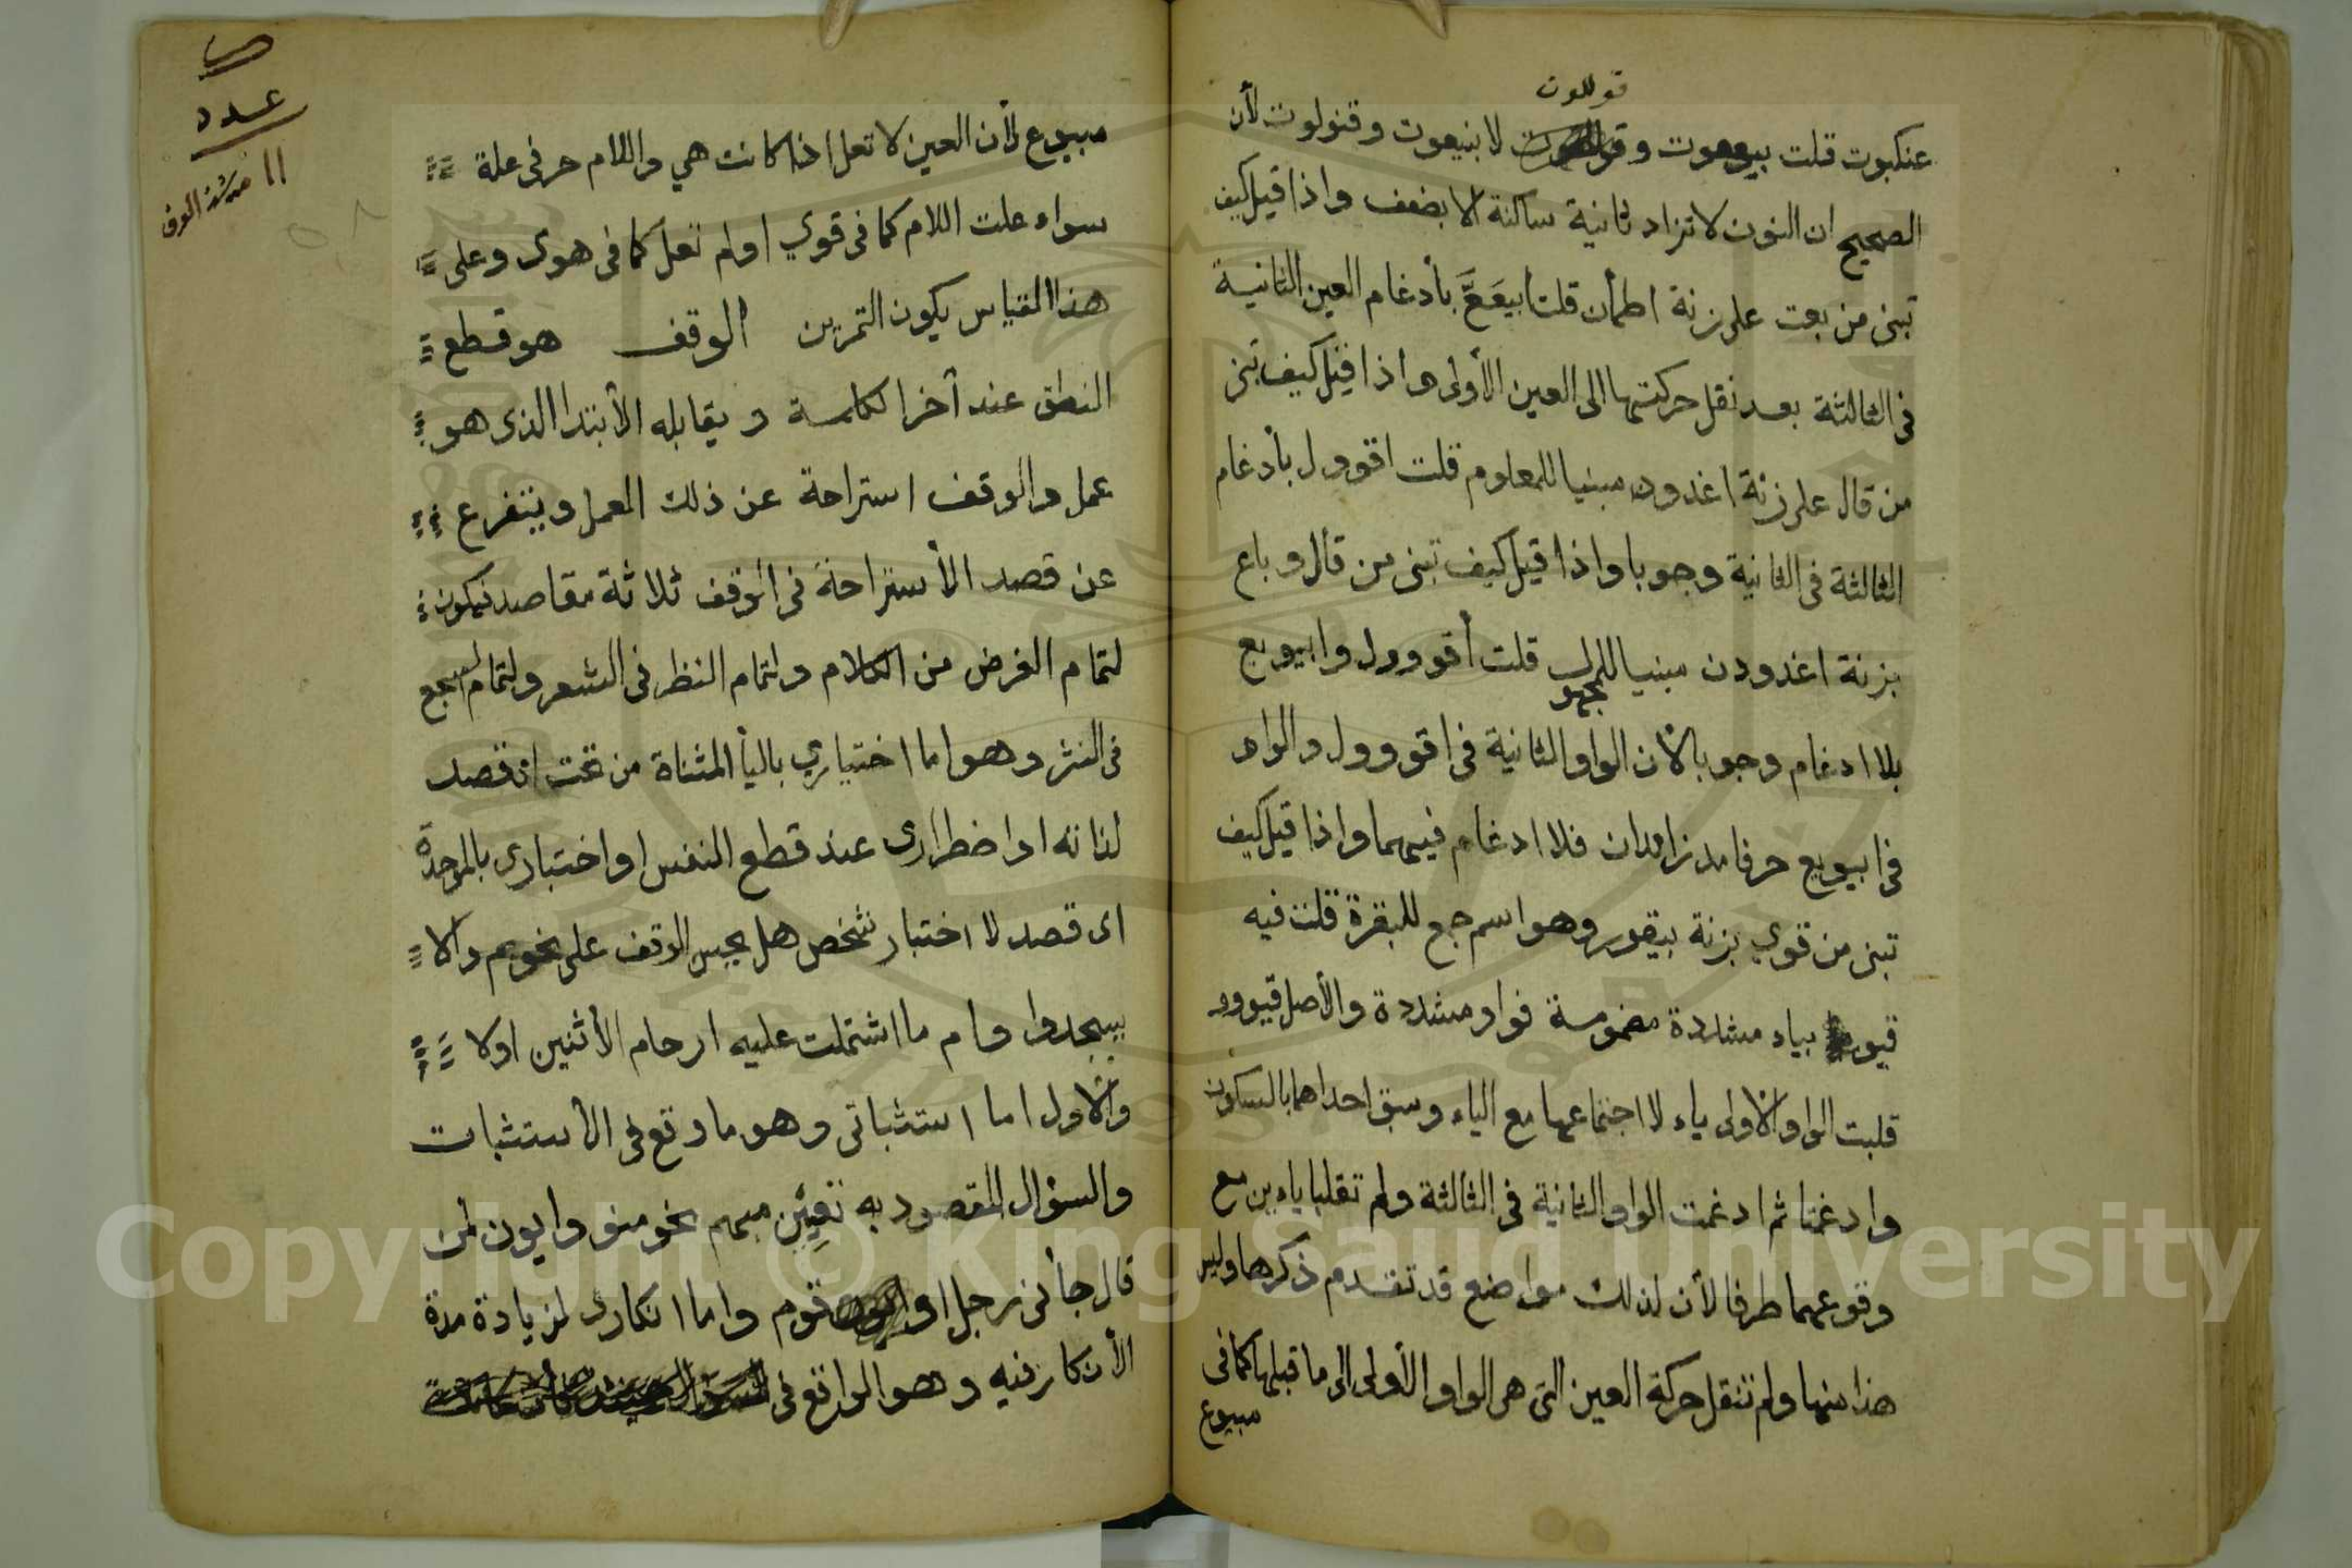 قوللوت
عنكبوت قلت بيععوت و لا بنيعوت وقنولوت لأن
الصحيح ان النون لا تزاد ثانية ساكنة الا بضعف واذا قيل كيف
تبنى من بعت على زنة اطمأن قلت ابيعَعَّ بأدغام العين الثانية
فى الثالثة بعد نقل حركتها الى العين الأولى واذا قيل كيف تبنى
من قال على زنة اغدودن مبنيا للمعلوم قلت اقوول بأدغام
الثالثة فى الثانية وجوبا واذا قيل كيف تبنى من قال وباع
بزنة اغدودن مبنيا للمجهول قلت أقووول وابيويع
بلا ادغام وجوبا لأن الواو الثانية فى اقووول والواو
فى ابيويع حرفا مد زائدان فلا ادغام فيهما واذا قيل كيف
تبنى من قوي بزنة بيقور وهو اسم جمع للبقرة قلت فيه
قيو بياء مشددة مضمومة فواو مشددة والأصل قيووو
قلبت الواو الأولى ياء لاجتماعها مع الياء وسبق احداهما بالسكون
وادغمتا ثم ادغمت الواو الثانية فى الثالثة ولم تقلبا ياءين مع
وقوعهما طرفا لأن لذلك مواضع قد تقدم ذكرها وليس
هذا منها ولم تنقل حركة العين التى هى الواو الأولى الى ما قبلها كما فى
مبيوع
ص
عدد
١١
مبيوع لأن العين لا تعل اذا كانت هي واللام حرفى علة
سواء علت اللام كما فى قوي او لم تعل كما فى هوى وعلى
هذا القياس يكون التمرين الوقف هو قطع
النطق عند آخر الكلمة ويقابله الأبتدا الذى هو
عمل والوقف استراحة عن ذلك العمل ويتفرع
عن قصد الأستراحة فى الوقف ثلاثة مقاصد فيكون
لتمام الغرض من الكلام ولتمام النظم فى الشعر ولتمام السجع
فى النثر وهو اما اختياري باليأ المثناة من تحت ان قصد
لذاته او اضطرارى عند قطع النفس او اختبارى بالموحدة
اى قصد لاختبار شخص هل يحسن الوقف على نحو بم والا
يسجدوا وام ما اشتملت عليه ارحام الأنثيين اولا
والأول اما استثباتى وهو ما وقع فى الأستثبات
والسؤال المقصود به تعيين مبهم نحو منو وايون لمن
قال جأنى رجل او قوم واما انكارى لزيادة مدة
الأنكار فيه وهو الواقع فى